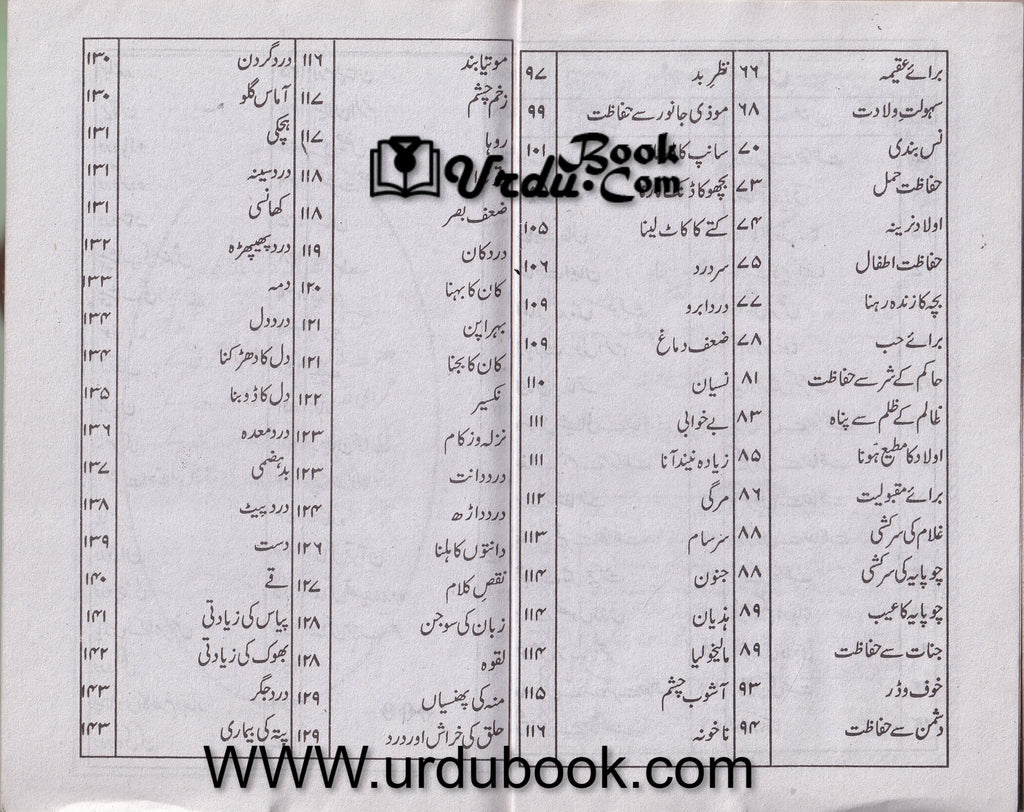 برائے عقیمہ ۶۶
سہولت ولادت ۶۸
نس بندی ۷۰
حفاظت حمل ۷۳
اولاد نرینہ ۷۴
حفاظت اطفال ۷۵
بچہ کا زندہ رہنا ۷۷
برائے حب ۷۸
حاکم کے شر سے حفاظت ۸۱
ظالم کے ظلم سے پناہ ۸۳
اولاد کا مطیع ہونا ۸۵
برائے مقبولیت ۸۶
غلام کی سرکشی ۸۸
چوپایہ کی سرکشی ۸۸
چوپایہ کا عیب ۸۹
جنات سے حفاظت ۸۹
خوف و ڈر ۹۳
دشمن سے حفاظت ۹۴
نظر بد ۹۷
موذی جانور سے حفاظت ۹۹
سانپ ۱۰۱
بچھو کا
کتے کا کاٹ لینا ۱۰۵
سر درد ۱۰۶
درد ابرو ۱۰۹
ضعف دماغ ۱۰۹
نسیان ۱۱۰
بے خوابی ۱۱۱
زیادہ نیند آنا ۱۱۱
مرگی ۱۱۲
سرسام ۱۱۳
جنون ۱۱۴
ہذیان ۱۱۴
مالیخولیا ۱۱۴
آشوب چشم ۱۱۵
ناخونہ ۱۱۶
موتیا بند ۱۱۶
زخم چشم ۱۱۷
روہا ۱۱۷
۱۱۸
ضعف بصر ۱۱۸
درد کان ۱۱۹
کان کا بہنا ۱۲۰
بہرا پن ۱۲۱
کان کا بجنا ۱۲۱
نکسیر ۱۲۲
نزلہ و زکام ۱۲۳
درد دانت ۱۲۳
درد داڑھ ۱۲۴
دانتوں کا ہلنا ۱۲۶
نقص کلام ۱۲۷
زبان کی سوجن ۱۲۸
لقوہ ۱۲۸
منہ کی پھنسیاں ۱۲۹
حلق کی خراش اور درد ۱۲۹
درد گردن ۱۳۰
آماس گلو ۱۳۰
ہچکی ۱۳۱
درد سینہ ۱۳۱
کھانسی ۱۳۱
درد پھیپھڑہ ۱۳۲
دمہ ۱۳۳
درد دل ۱۳۴
دل کا دھڑکنا ۱۳۴
دل کا ڈوبنا ۱۳۵
درد معدہ ۱۳۶
بد ہضمی ۱۳۷
درد پیٹ ۱۳۸
دست ۱۳۹
قے ۱۴۰
پیاس کی زیادتی ۱۴۱
بھوک کی زیادتی ۱۴۲
درد جگر ۱۴۳
پتہ کی بیماری ۱۴۳
UrduBook.Com
WWW.urdubook.com